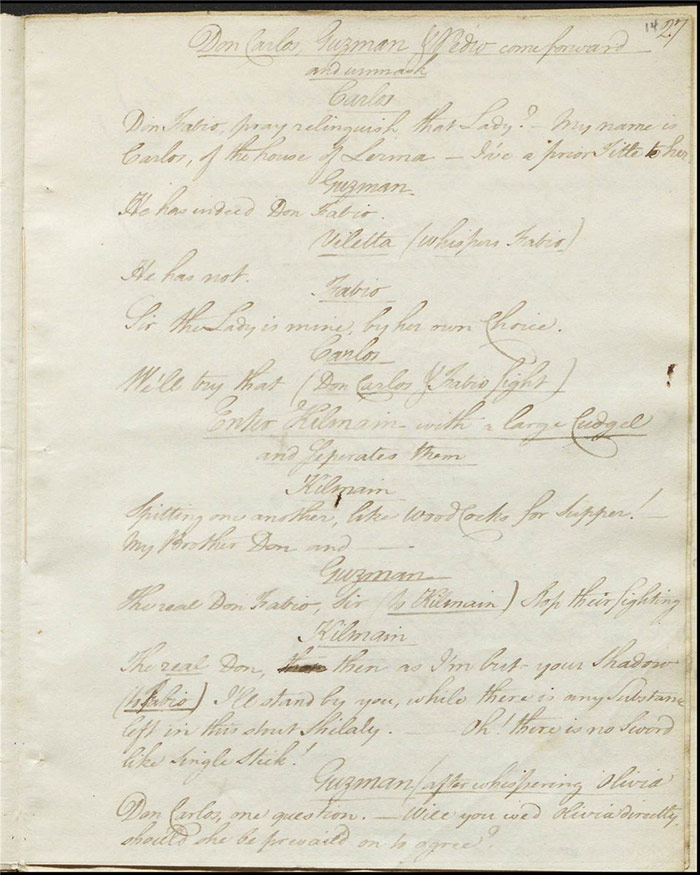 14 27
Don Carlos, Guzman & Pedro come forward
and unmask
Carlos
Don Fabio, pray relinquish that Lady? – My name is
Carlos, of the house of Lerma – I'ave a prior Title to her
Guzman.
He has indeed Don Fabio.
Viletta (whispers Fabio)
He has not.
Fabio
Sir the Lady is mine, by her own Choice.
Carlos
We'll try that (Don Carlos & Fabio fight)
Enter Kilmain with a large Cudgel
and Seperates them
Kilmain
Spitting one another, like Wood Cocks for Supper! –
My Brother Don and ——
Guzman
The real Don Fabio, Sir (to Kilmain) Stop their fighting
Kilmain
The real Don, then as I'm but your Shadow
(to Fabio) I'll stand by you, while there is any Substance
left in this strut Shilaly. —— Oh! there is no Sword
like Single Stick!
Guzman (after whispering Olivia
Don Carlos, one question. – Will you wed Olivia directly,
should she be prevaild on to agree?